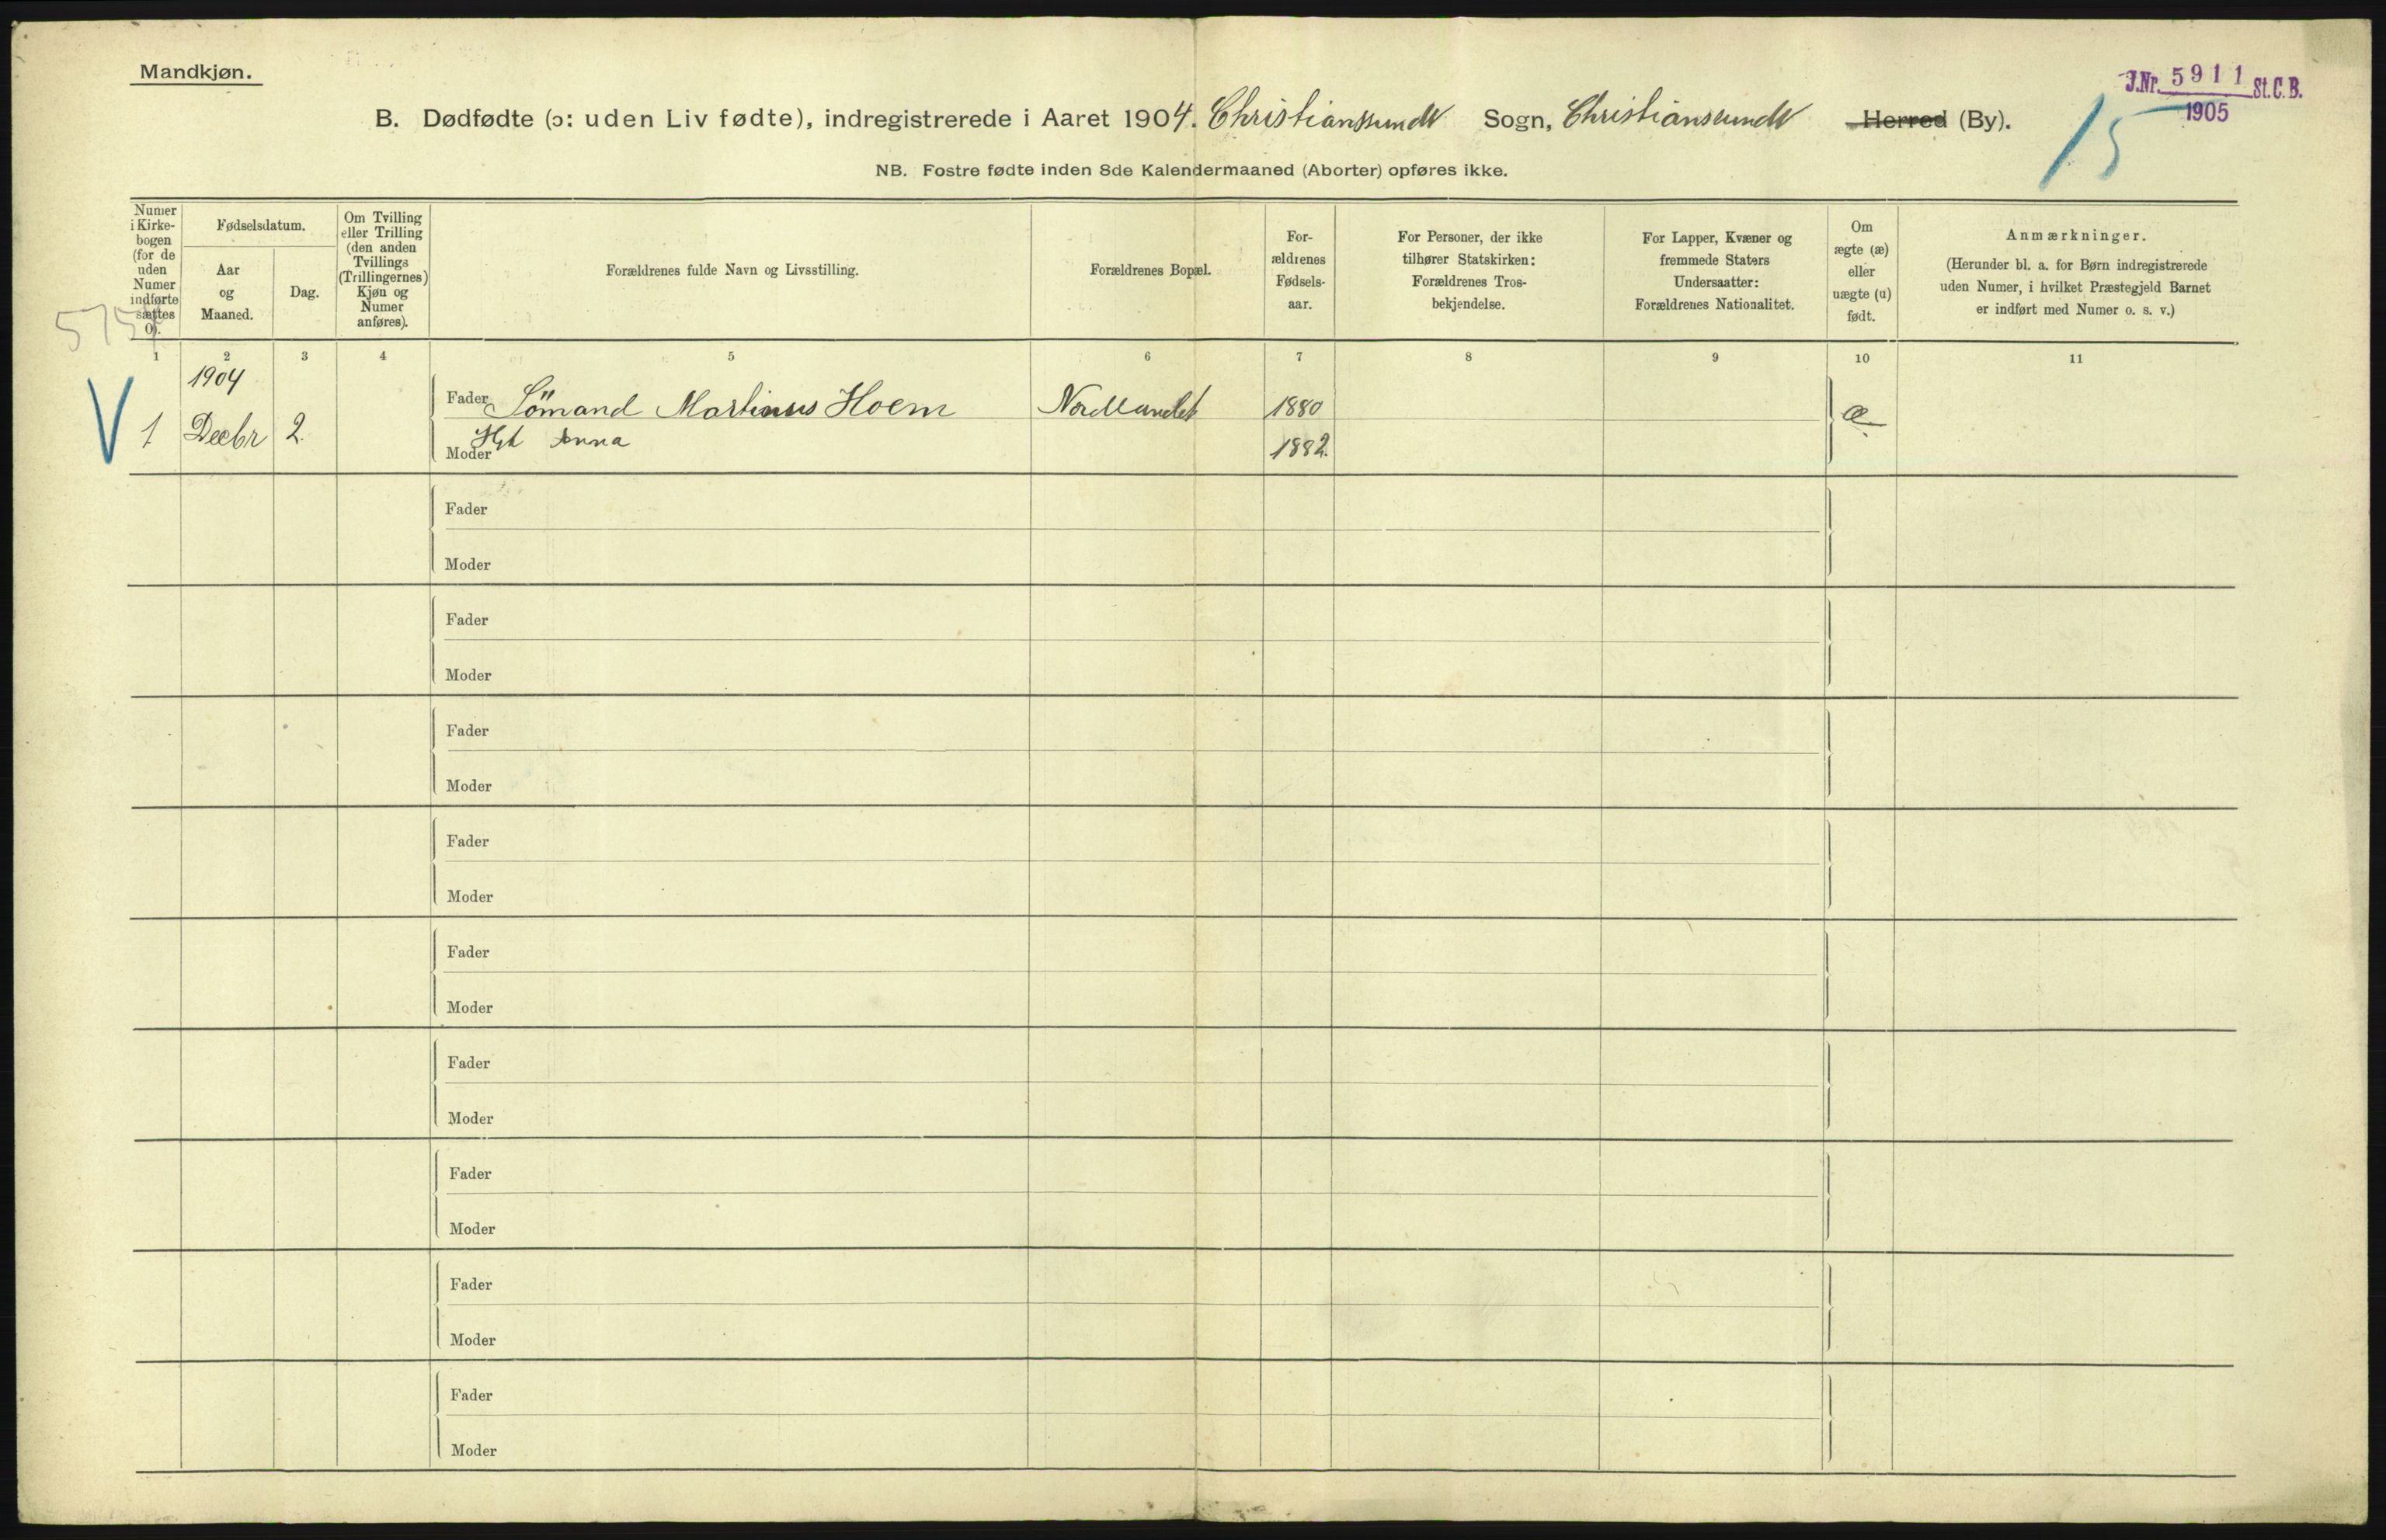 Mandkjøn.
J.Nr. 5911 St.C.B.
1905
15
B. Dødfødte (ɔ: uden Liv fødte), indregistrerede i Aaret 1904. Christianssund Sogn, Christianssund Herred (By).
NB. Fostre fødte inden 8de Kalendermaaned (Aborter) opføres ikke.
Numer
i Kirke-
bogen
(for de
uden
Numer
indførte
sættes
0).
Fødselsdatum.
Aar
og
Maaned.
Dag.
Om Tvilling
eller Trilling
(den anden
Tvillings
(Trillingernes)
Kjøn og
Numer
anføres).
Forældrenes fulde Navn og Livsstilling.
Forældrenes Bopæl.
For-
ældrenes
Fødsels-
aar.
For Personer, der ikke
tilhører Statskirken:
Forældrenes Tros-
bekjendelse.
For Lapper, Kvæner og
fremmede Staters
Undersaatter:
Forældrenes Nationalitet.
Om
ægte (æ)
eller
uægte (u)
født.
Anmærkninger.
(Herunder bl. a. for Børn indregistrerede
uden Numer, i hvilket Præstegjeld Barnet
er indført med Numer o. s. v.)
1 2 3 4 5 6 7 8 9 10 11
1904
Fader Sömand Martinus Hoem Nordlandet 1880 æ
V 1 Decbr 2.
Moder Hst Anna 1882.
Fader
Moder
Fader
Moder
Fader
Moder
Fader
Moder
Fader
Moder
Fader
Moder
Fader
Moder
Fader
Moder
Fader
Moder